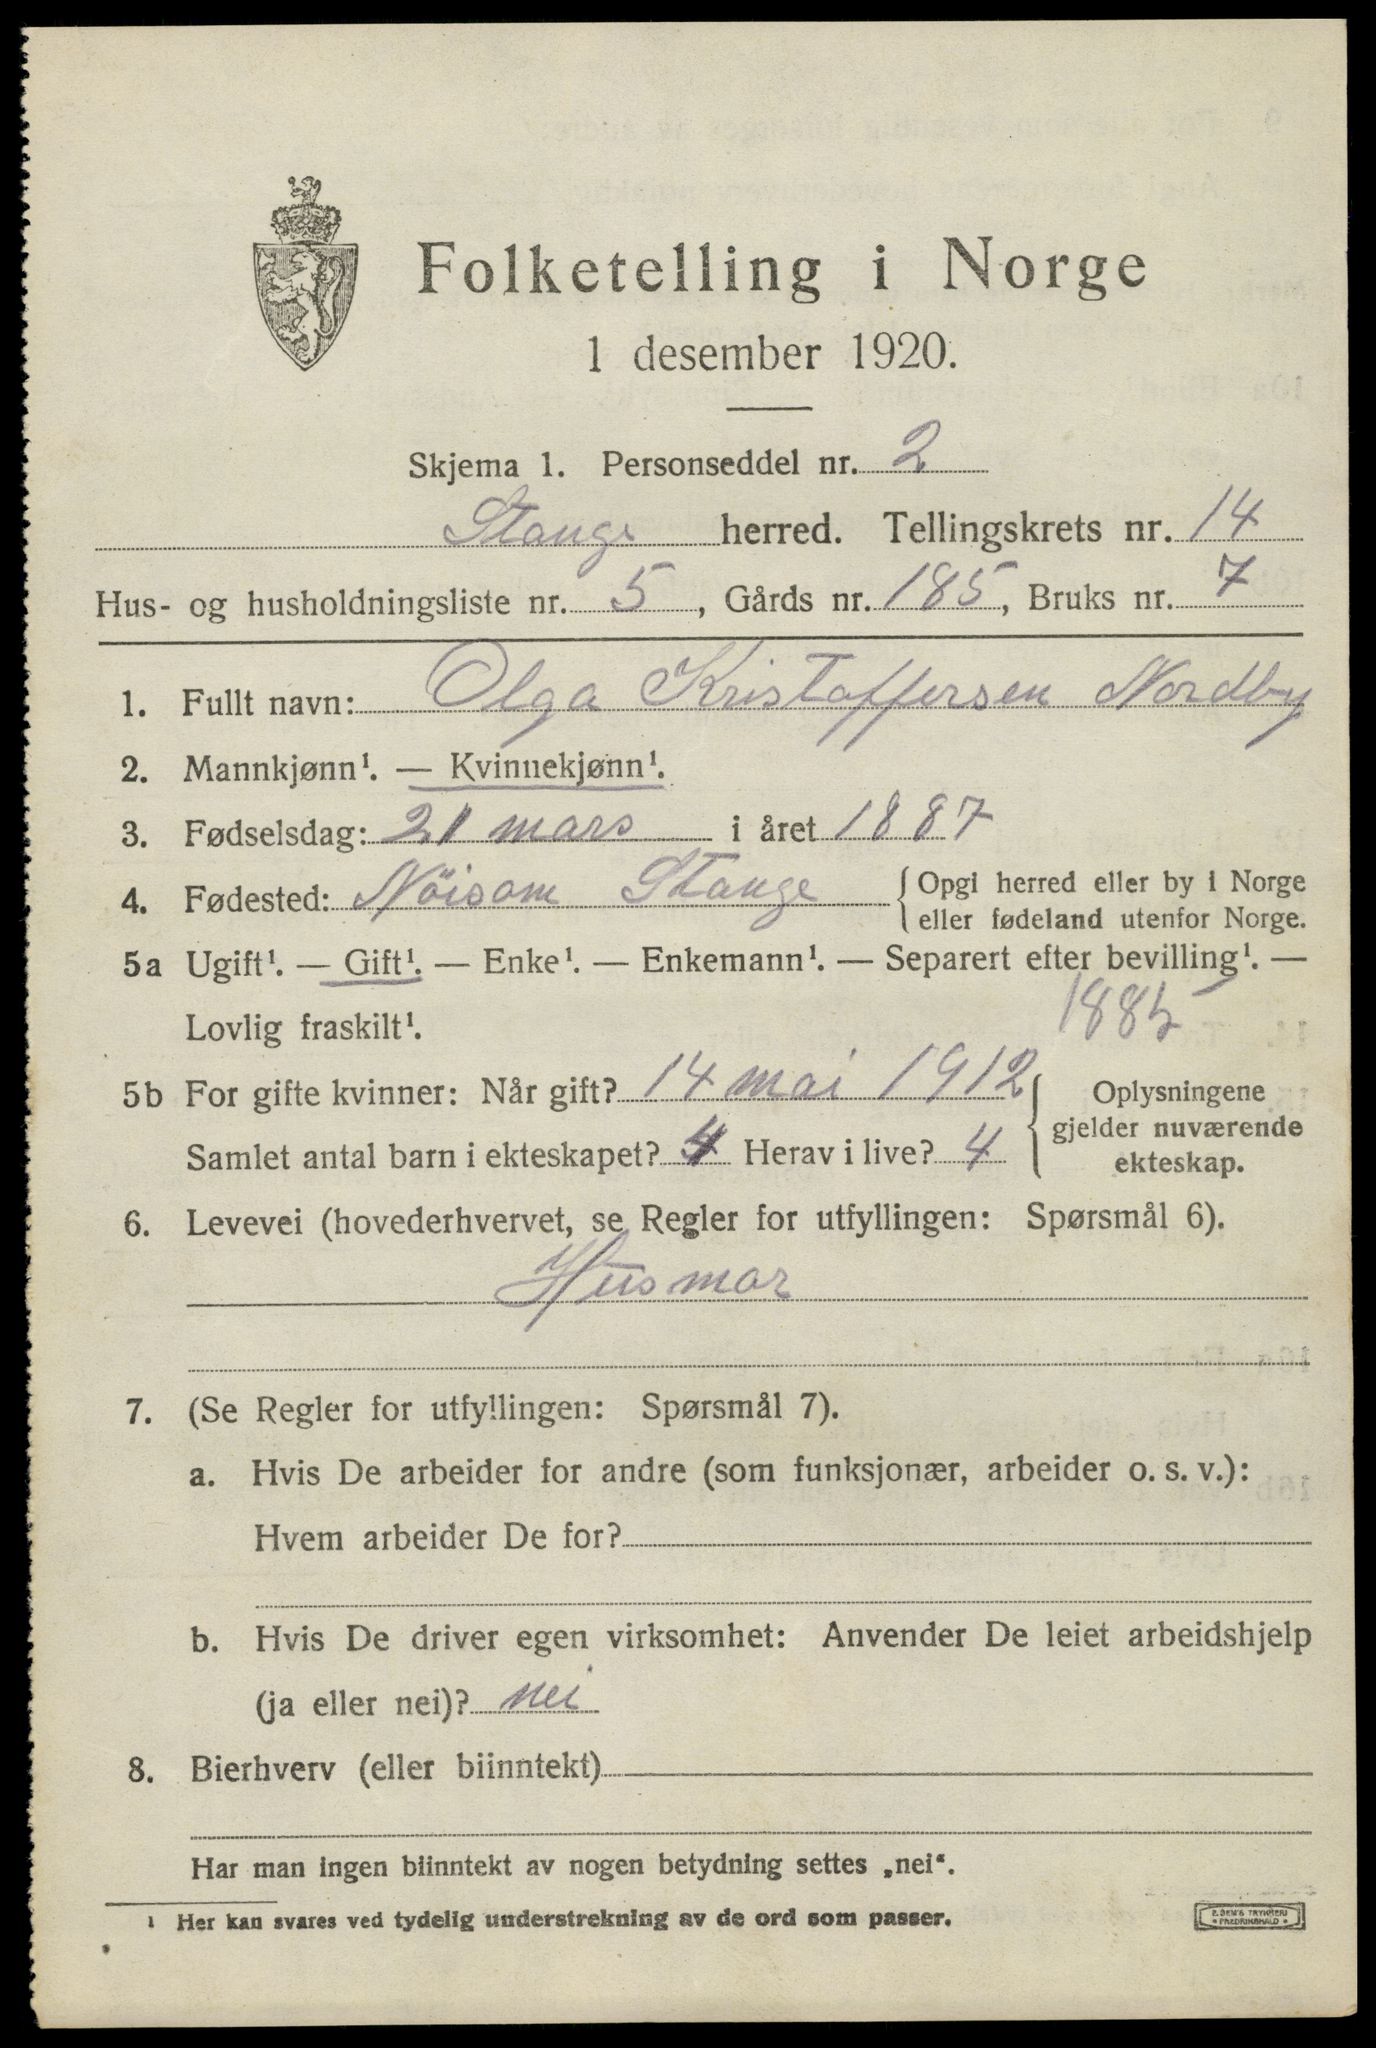 Folketelling i Norge
1 desember 1920.
Skjema 1. Personseddel nr. 2
Stange herred. Tellingskrets nr. 14
Hus- og husholdningsliste nr. 5, Gårds nr. 185, Bruks nr. 7
1. Fullt navn: Olga Kristoffersen Nordby
2. Mannkjønn¹. — Kvinnekjønn¹.
3. Fødselsdag: 21 mars i året 1887
4. Fødested: Nöisom Stange { Opgi herred eller by i Norge
eller fødeland utenfor Norge.
5a Ugift¹. — Gift¹. — Enke¹. — Enkemann¹. — Separert efter bevilling¹. —
Lovlig fraskilt¹. 1885
5b For gifte kvinner: Når gift? 14 mai 1912 { Oplysningene
gjelder nuværende
ekteskap.
Samlet antal barn i ekteskapet? 4 Herav i live? 4
6. Levevei (hovederhvervet, se Regler for utfyllingen: Spørsmål 6).
Husmor
7. (Se Regler for utfyllingen: Spørsmål 7).
a. Hvis De arbeider for andre (som funksjonær, arbeider o. s. v.):
Hvem arbeider De for?
b. Hvis De driver egen virksomhet: Anvender De leiet arbeidshjelp
(ja eller nei)? nei
8. Bierhverv (eller biinntekt)
Har man ingen biinntekt av nogen betydning settes „nei“.
¹ Her kan svares ved tydelig understrekning av de ord som passer.
E. SEM'S TRYKKERI
FREDRIKSHALD